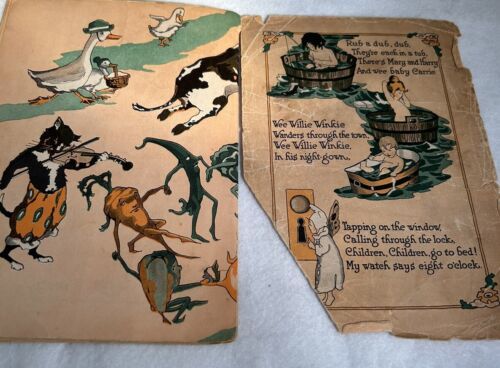 Rub a dub, dub,
They're each in a tub,
There's Mary and Harry
And wee baby Carrie
Wee Willie Winkie
Wanders through the town,
Wee Willie Winkie,
In his night-gown,
Tapping on the window,
Calling through the lock,
Children, Children, go to bed!
My watch says eight o'clock.